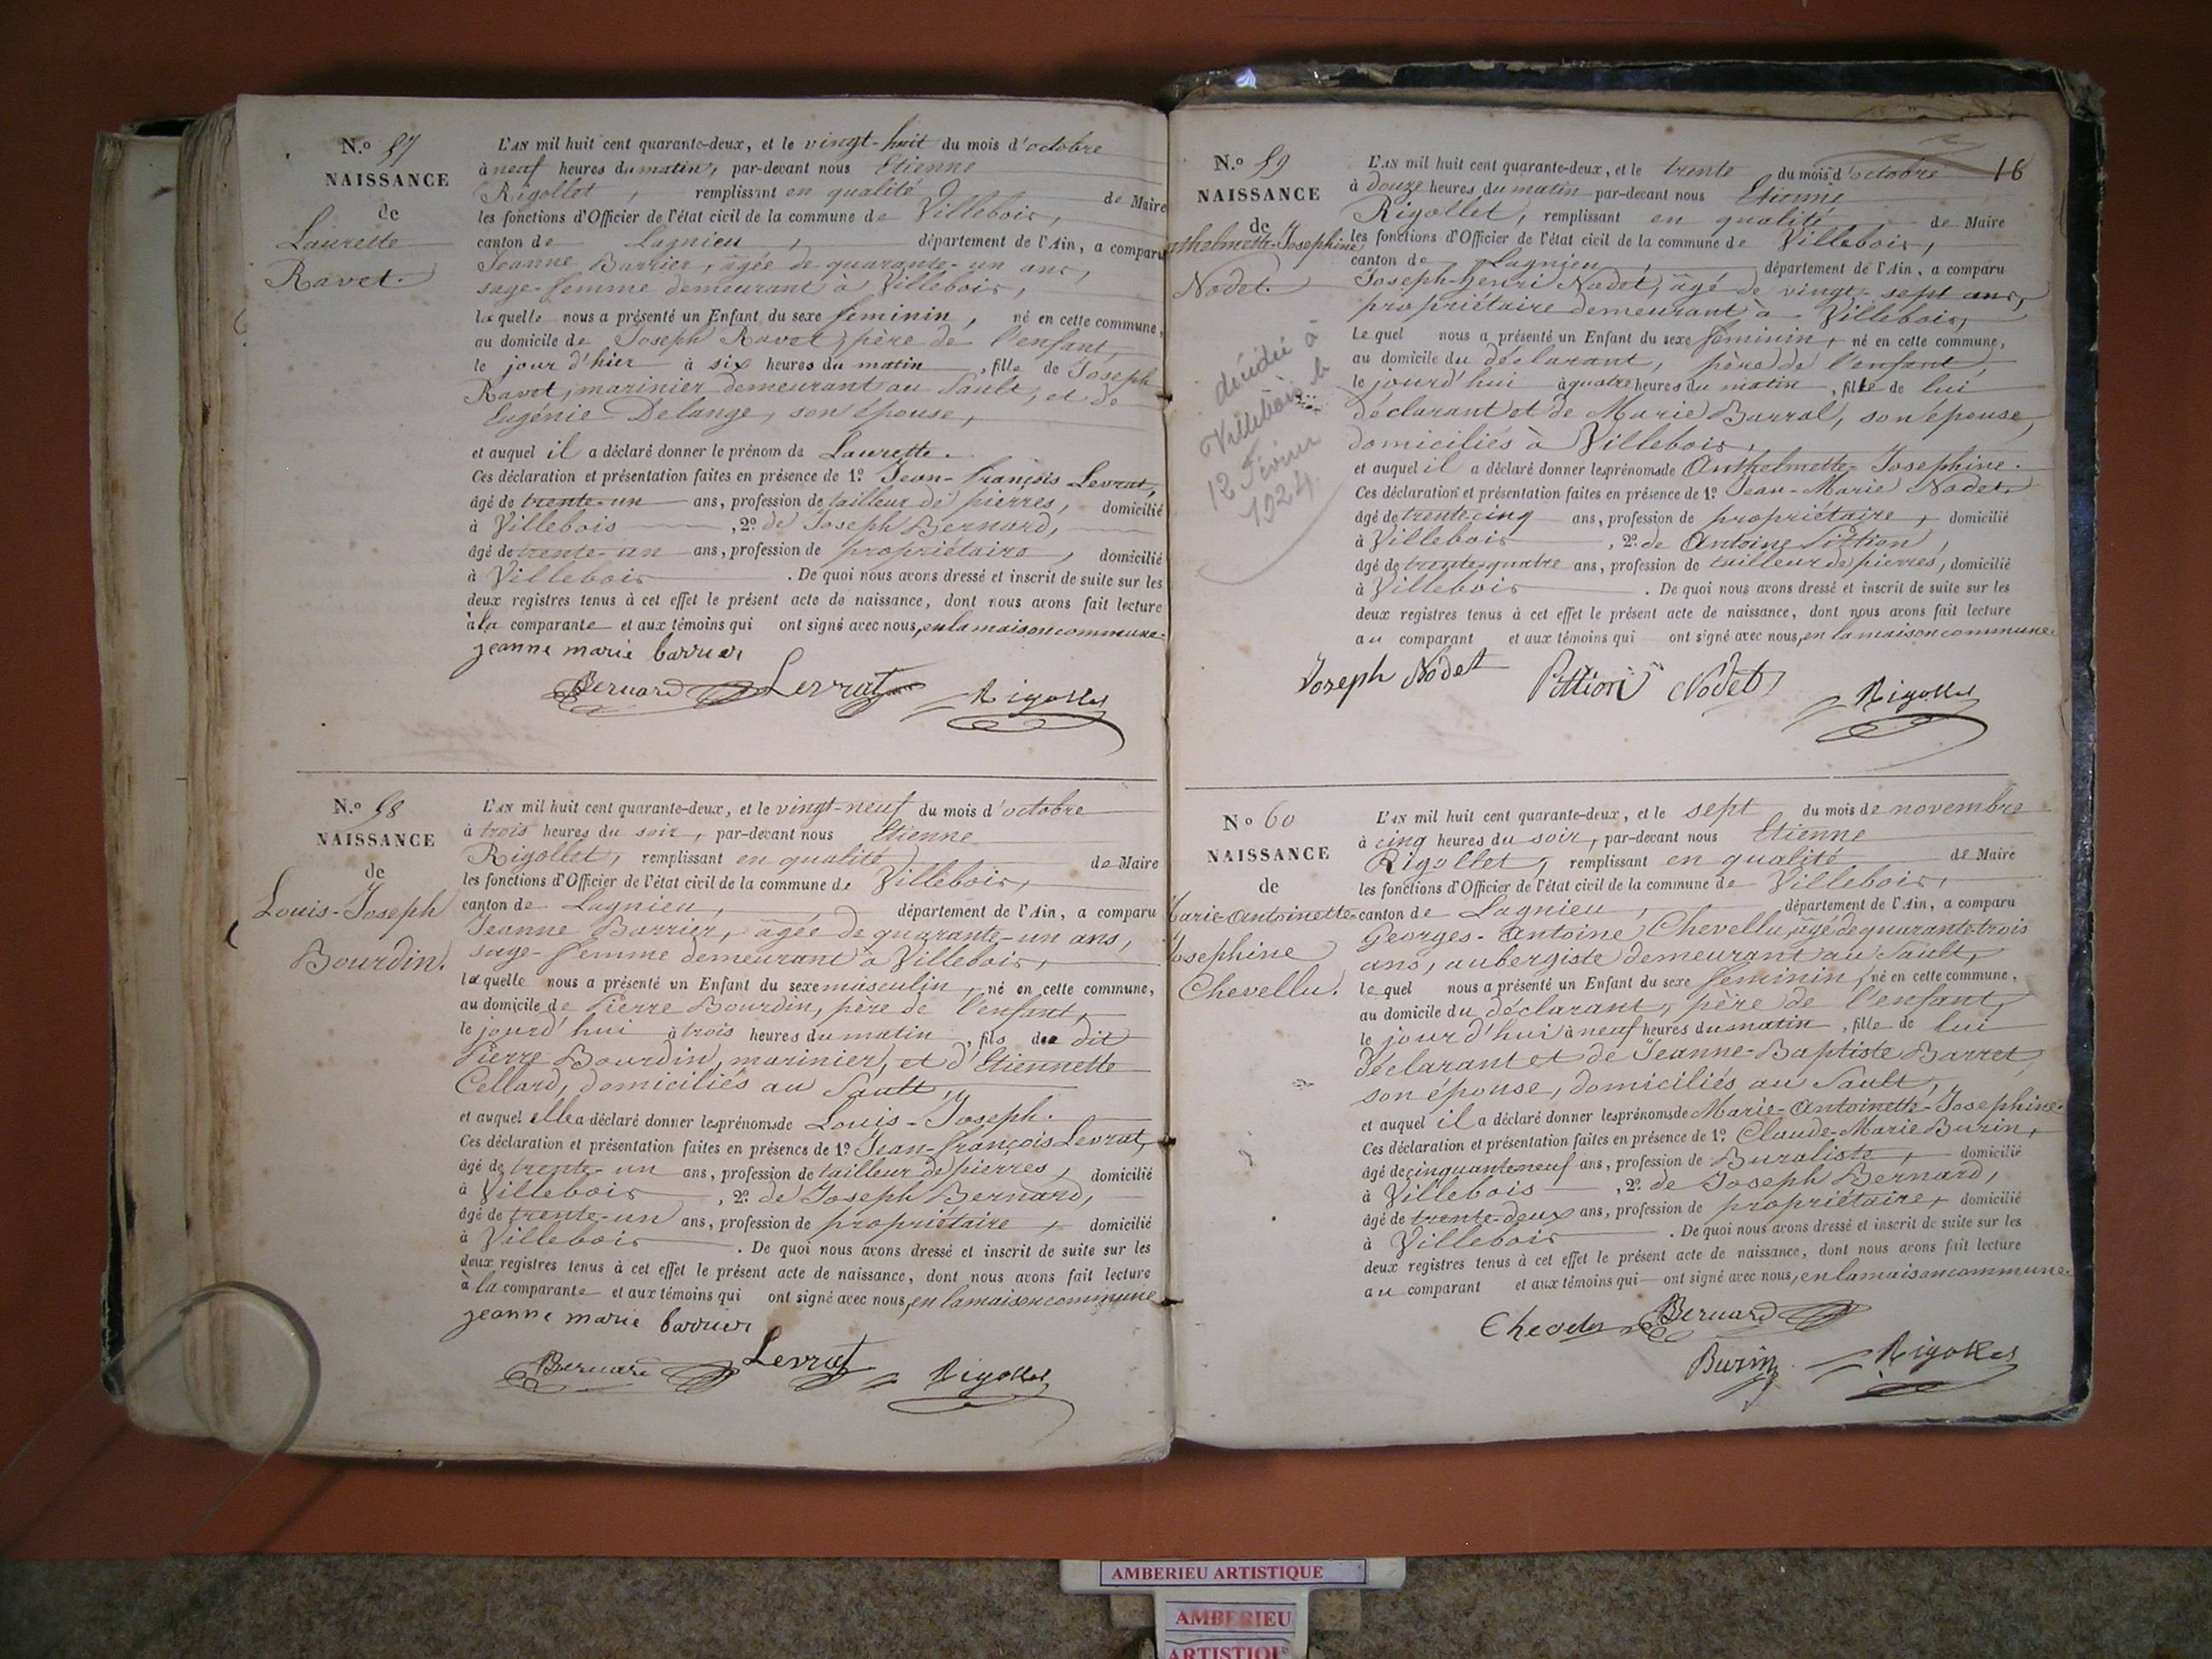 N.º 57
NAISSANCE
de
Laurette
Ravet.
L'AN mil huit cent quarante-deux, et le vingt-huit du mois d'octobre
à neuf heures du matin, par-devant nous Etienne
Rigollet, remplissant en qualité de Maire
les fonctions d'Officier de l'état civil de la commune de Villebois,
canton de Lagnieu, département de l'Ain, a comparu
Jeanne Barrier, âgée de quarante-un ans,
sage-femme demeurant à Villebois,
laquelle nous a présenté un Enfant du sexe féminin, né en cette commune,
au domicile de Joseph Ravet, père de l'enfant,
le jour d'hier à six heures du matin, fille de Joseph
Ravet, marinier demeurant au Sault, et de
Eugénie Delange, son épouse,
et auquel il a déclaré donner le prénom de Laurette.
Ces déclaration et présentation faites en présence de 1º Jean-françois Levrat,
âgé de trente-un ans, profession de tailleur de pierres, domicilié
à Villebois, 2º de Joseph Bernard,
âgé de trente-un ans, profession de propriétaire, domicilié
à Villebois. De quoi nous avons dressé et inscrit de suite sur les
deux registres tenus à cet effet le présent acte de naissance, dont nous avons fait lecture
à la comparante et aux témoins qui ont signé avec nous, en la maison commune.
jeanne marie barrier
Bernard Levrat Rigollet
N.º 58
NAISSANCE
de
Louis-Joseph
Bourdin.
L'AN mil huit cent quarante-deux, et le vingt-neuf du mois d'octobre
à trois heures du soir, par-devant nous Etienne
Rigollet, remplissant en qualité de Maire
les fonctions d'Officier de l'état civil de la commune de Villebois,
canton de Lagnieu, département de l'Ain, a comparu
Jeanne Barrier, âgée de quarante-un ans,
sage-femme demeurant à Villebois,
laquelle nous a présenté un Enfant du sexe masculin, né en cette commune,
au domicile de Pierre Bourdin, père de l'enfant,
le jourd'hui à trois heures du matin, fils de dit
Pierre Bourdin, marinier, et d'Etiennette
Cellard, domiciliés au Sault,
et auquel elle a déclaré donner les prénoms de Louis-Joseph.
Ces déclaration et présentation faites en présence de 1º Jean-françois Levrat,
âgé de trente-un ans, profession de tailleur de pierres, domicilié
à Villebois, 2º de Joseph Bernard,
âgé de trente-un ans, profession de propriétaire, domicilié
à Villebois. De quoi nous avons dressé et inscrit de suite sur les
deux registres tenus à cet effet le présent acte de naissance, dont nous avons fait lecture
à la comparante et aux témoins qui ont signé avec nous, en la maison commune
jeanne marie barrier
Bernard Levrat Rigollet
16
N.º 59
NAISSANCE
de
nthelmette-Josephine
Nodet.
décédée à
Villebois le
12 Février
1924.
L'AN mil huit cent quarante-deux, et le trente du mois d'octobre
à douze heures du matin par-devant nous Etienne
Rigollet, remplissant en qualité de Maire
les fonctions d'Officier de l'état civil de la commune de Villebois,
canton de Lagnieu, département de l'Ain, a comparu
Joseph-henri Nodet, âgé de vingt-sept ans,
propriétaire demeurant à Villebois,
Lequel nous a présenté un Enfant du sexe féminin, né en cette commune,
au domicile du déclarant, père de l'enfant,
le jourd'hui à quatre heures du matin, fille de lui
déclarant et de Marie Barral, son épouse,
domiciliés à Villebois,
et auquel il a déclaré donner les prénoms de Anthelmette-Josephine.
Ces déclaration et présentation faites en présence de 1º Jean-Marie Nodet,
âgé de trente cinq ans, profession de propriétaire, domicilié
à Villebois, 2º de Antoine Pittion,
âgé de trente-quatre ans, profession de tailleur de pierres, domicilié
à Villebois. De quoi nous avons dressé et inscrit de suite sur les
deux registres tenus à cet effet le présent acte de naissance, dont nous avons fait lecture
au comparant et aux témoins qui ont signé avec nous, en la maison commune.
Joseph Nodet Pittion Nodet
Rigollet
Nº 60
NAISSANCE
de
Marie-Antoinette-
Josephine
Chevellu.
L'AN mil huit cent quarante-deux, et le sept du mois de novembre
à cinq heures du soir, par-devant nous Etienne
Rigollet, remplissant en qualité de Maire
les fonctions d'Officier de l'état civil de la commune de Villebois,
canton de Lagnieu, département de l'Ain, a comparu
Georges-Antoine Chevellu, âgé de quarante-trois
ans, aubergiste demeurant au Sault,
lequel nous a présenté un Enfant du sexe féminin, né en cette commune,
au domicile du déclarant, père de l'enfant,
le jour d'hui à neuf heures du matin, fille de lui
déclarant et de Jeanne-Baptiste Barret,
son épouse, domiciliés au Sault,
et auquel il a déclaré donner les prénoms de Marie-Antoinette-Josephine.
Ces déclaration et présentation faites en présence de 1º Claude-Marie Burin,
âgé de cinquante neuf ans, profession de Buraliste, domicilié
à Villebois, 2º de Joseph Bernard,
âgé de trente-deux ans, profession de propriétaire, domicilié
à Villebois. De quoi nous avons dressé et inscrit de suite sur les
deux registres tenus à cet effet le présent acte de naissance, dont nous avons fait lecture
au comparant et aux témoins qui ont signé avec nous, en la maison commune.
Bernard
Burin Rigollet
AMBERIEU ARTISTIQUE
AMBERIEU
ARTISTIQUE